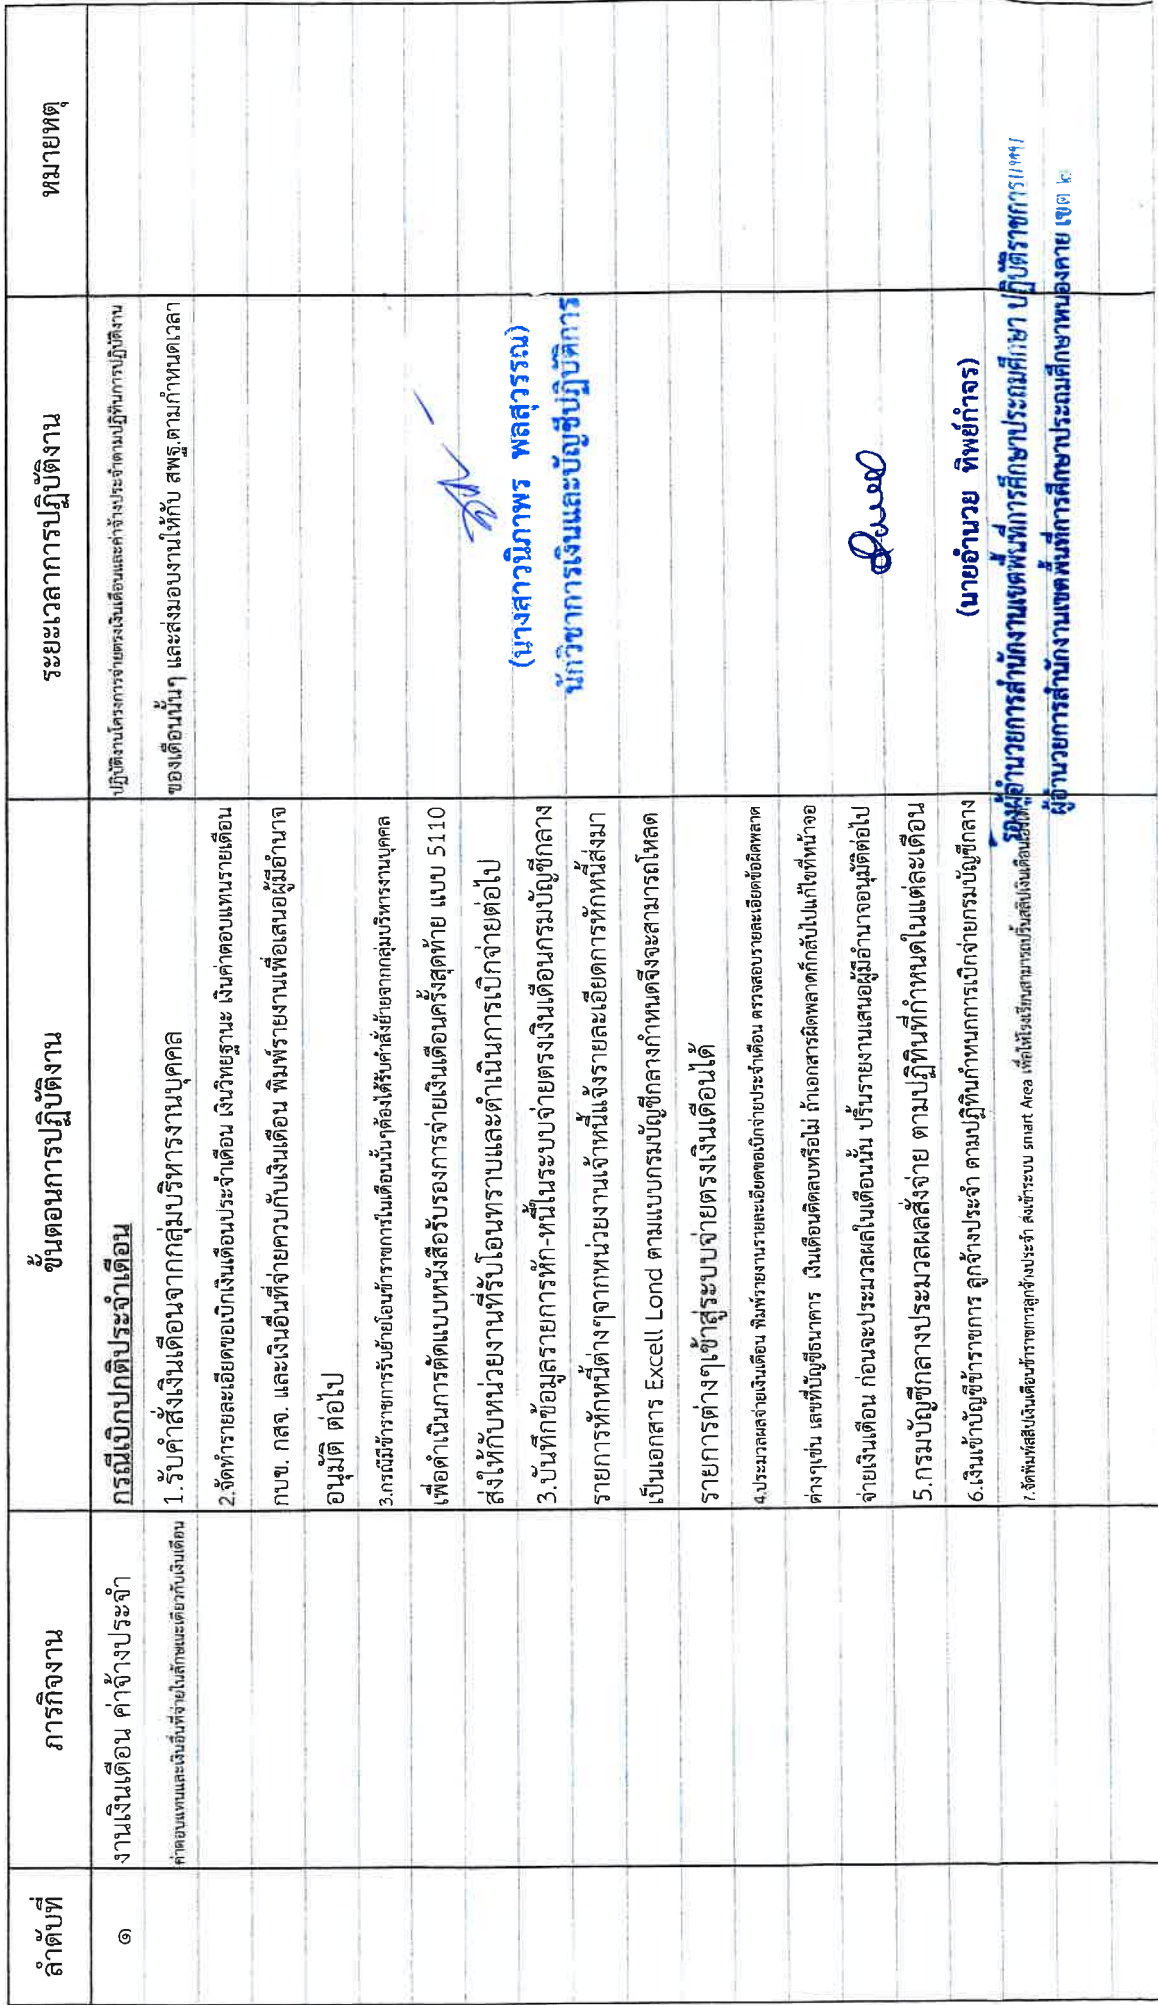 ลำดับที่ ภารกิจงาน ขั้นตอนการปฏิบัติงาน ระยะเวลาการปฏิบัติงาน หมายหตุ
๑ งานเงินเดือน ค่าจ้างประจำ กรณีเบิกปกติประจำเดือน ปฏิบัติงานโครงการจ่ายตรงเงินเดือนและค่าจ้างประจำตามปฏิทินการปฏิบัติงาน
ค่าตอบแทนและเงินอื่นที่จ่ายในลักษณะเดียวกับเงินเดือน 1.รับคำสั่งเงินเดือนจากกลุ่มบริหารงานบุคคล ของเดือนนั้นๆ และส่งมอบงานให้กับ สพฐ.ตามกำหนดเวลา
2.จัดทำรายละเอียดขอเบิกเงินเดือนประจำเดือน เงินวิทยฐานะ เงินค่าตอบแทนรายเดือน
กบข. กสจ. และเงินอื่นที่จ่ายควบกับเงินเดือน พิมพ์รายงานเพื่อเสนอผู้มีอำนาจ
อนุมัติ ต่อไป
3.กรณีมีข้าราชการรับย้ายโอนข้าราชการในเดือนนั้นๆต้องได้รับคำสั่งย้ายจากกลุ่มบริหารงานบุคคล
เพื่อดำเนินการตัดแบบหนังสือรับรองการจ่ายเงินเดือนครั้งสุดท้าย แบบ 5110
ส่งให้กับหน่วยงานที่รับโอนทราบและดำเนินการเบิกจ่ายต่อไป
(นางสาวนิภาพร พลสุวรรณ)
3.บันทึกข้อมูลรายการหัก-หนี้ในระบบจ่ายตรงเงินเดือนกรมบัญชีกลาง
นักวิชาการเงินและบัญชีปฏิบัติการ
รายการหักหนี้ต่างๆจากหน่วยงานเจ้าหนี้แจ้งรายละเอียดการหักหนี้ส่งมา
เป็นเอกสาร Excell Lond ตามแบบกรมบัญชีกลางกำหนดจึงจะสามารถโหลด
รายการต่างๆเข้าสู่ระบบจ่ายตรงเงินเดือนได้
4.ประมวลผลจ่ายเงินเดือน พิมพ์รายงานรายละเอียดขอเบิกจ่ายประจำเดือน ตรวจสอบรายละเอียดข้อผิดพลาด
ต่างๆเช่น เลขที่บัญชีธนาคาร เงินเดือนติดลบหรือไม่ ถ้าเอกสารผิดพลาดก็กลับไปแก้ไขที่หน้าจอ
จ่ายเงินเดือน ก่อนจะประมวลผลในเดือนนั้น ปริ้นรายงานเสนอผู้มีอำนาจอนุมัติต่อไป
5.กรมบัญชีกลางประมวลผลสั่งจ่าย ตามปฏิทินที่กำหนดในแต่ละเดือน
6.เงินเข้าบัญชีข้าราชการ ลูกจ้างประจำ ตามปฏิทินกำหนกการเบิกจ่ายกรมบัญชีกลาง
(นายอำนวย ทิพย์กำจร)
7.จัดพิมพ์สลิปเงินเดือนข้าราชการลูกจ้างประจำ ส่งเข้าระบบ smart Area เพื่อให้โรงเรียนสามารถปริ้นสลิปเงินเดือน
รองผู้อำนวยการสำนักงานเขตพื้นที่การศึกษาประถมศึกษา ปฏิบัติราชการแทน
ผู้อำนวยการสำนักงานเขตพื้นที่การศึกษาประถมศึกษาหนองคาย เขต ๒